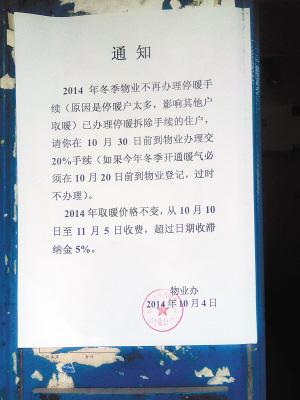 通 知
2014 年冬季物业不再办理停暖手
续（原因是停暖户太多，影响其他户
取暖）已办理停暖拆除手续的住户，
请你在 10 月 30 日前到物业办理交
20%手续（如果今年冬季开通暖气必
须在 10 月 20 日前到物业登记，过时
不办理）。
2014 年取暖价格不变，从 10 月 10
日至 11 月 5 日收费，超过日期收滞
纳金 5%。
物业办
2014 年 10 月 4 日